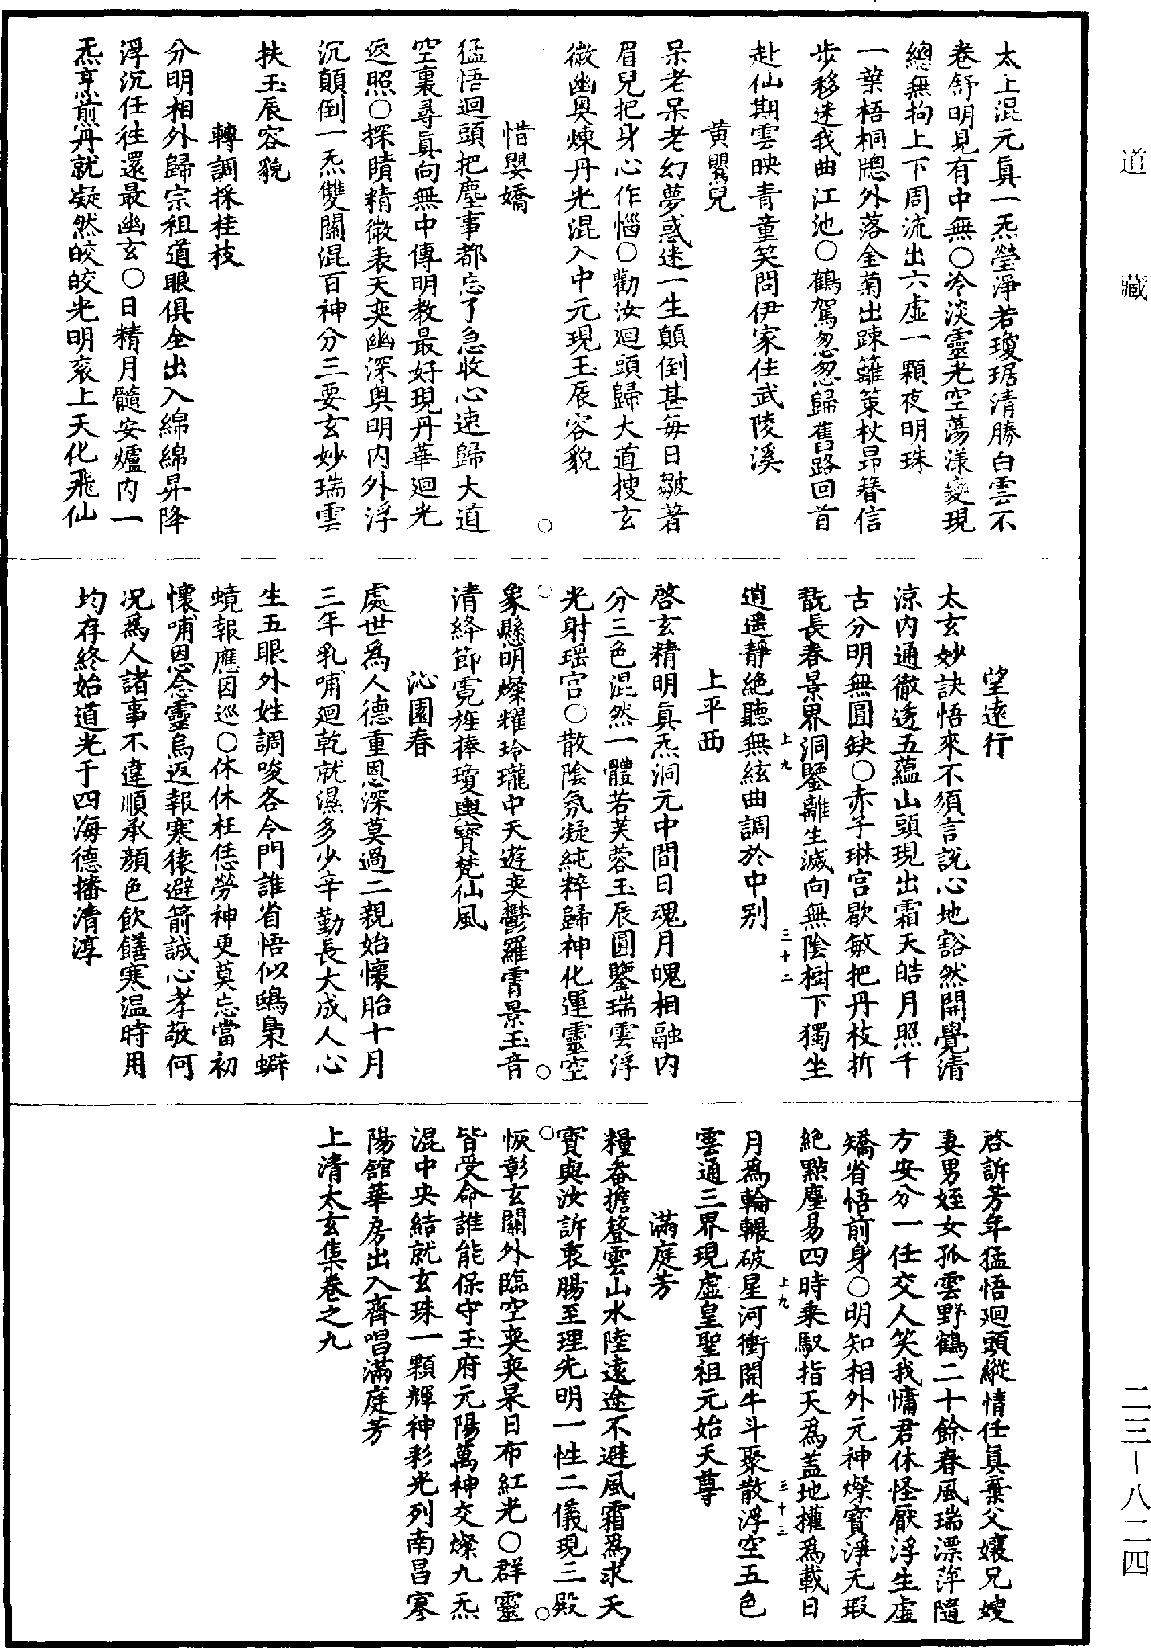 太上混元真一炁瑩淨若瓊琚清勝白雲不
卷舒明見有中無○冷淡靈光空蕩漾變現
總無拘上下周流出六虛一顆夜明珠
一葉梧桐牕外落金菊出踈籬策杖昂藜信
步移迷我曲江池○鶴駕忽忽歸舊路回首
赴仙期雲映青童笑問伊家住武陵溪
黃鸎兒
呆老呆老幻夢惑迷一生顛倒甚每日皺著
眉兒把身心作惱○勸汝迴頭歸大道搜玄
微幽奧煉丹光混入中元現玉辰容貌
○
惜嬰嬌
猛悟迴頭把塵事都忘了急收心速歸大道
空裏尋真向無中傳明教最好現丹華迴光
返照○探賾精微表天奕幽深奧明內外浮
沉顛倒一炁雙關混百神分三要玄妙瑞雲
扶玉辰容貌
轉調採桂枝
分明相外歸宗祖道眼俱全出入綿綿昇降
浮沉任往還最幽玄○日精月髓安爐內一
炁烹煎丹就凝然皎皎光明袞上天化飛仙
望遠行
太玄妙訣悟來不須言說心地豁然開覺清
涼內通徹透五蘊山頭現出霜天皓月照千
古分明無圓缺○赤子琳宮歇敏把丹枝折
翫長春景界洞鑒離生滅向無陰樹下獨坐
逍遥靜絕聽無絃曲調於中別
上九
三十二
上平西
啓玄精明真炁洞元中間日魂月魄相融內
分三色混然一體若芙蓉玉辰圓鑒瑞雲浮
光射瑶宮○散陰氛凝純粹歸神化運靈空
○
○
象懸明燦耀玲瓏中天遊奕鬱羅霄景玉音
清絳節霓旌捧瓊輿寶梵仙風
沁園春
處世為人德重恩深莫過二親始懷胎十月
三年乳哺迴乾就濕多少辛勤長大成人心
生五眼外姓調唆各令門誰省悟似鴟梟蟒
蟯報應因巡○休休枉恁勞神更莫忘當初
懷哺恩念靈烏返報寒猿避箭誠心孝敬何
况為人諸事不違順承顏色飲饍寒温時用
均存終始道光于四海德播清淳
啓訴芳年猛悟迴頭縱情任真棄父孃兄嫂
妻男姪女孤雲野鶴二十餘春風瑞漂萍隨
方安分一任交人笑我慵君休怪厭浮生虛
矯省悟前身○明知相外元神燦寶淨无瑕
絕點塵易四時乘馭指天為蓋地擁為載日
月為輪輾破星河衝開牛斗聚散浮空五色
上九
三十三
雲通三界現虛皇聖祖元始天尊
滿庭芳
糧奔擔簦雲山水陸遠途不避風霜為求天
寶與汝訴衷腸至理光明一性二儀現三殿
○
○
恢彰玄關外臨空奕奕杲日布紅光○群靈
皆受命誰能保守玉府元陽萬神交燦九炁
混中央結就玄珠一顆輝神彩光列南昌寒
陽舘華房出入齊唱滿庭芳
上清太玄集卷之九
道藏
二三—八二四